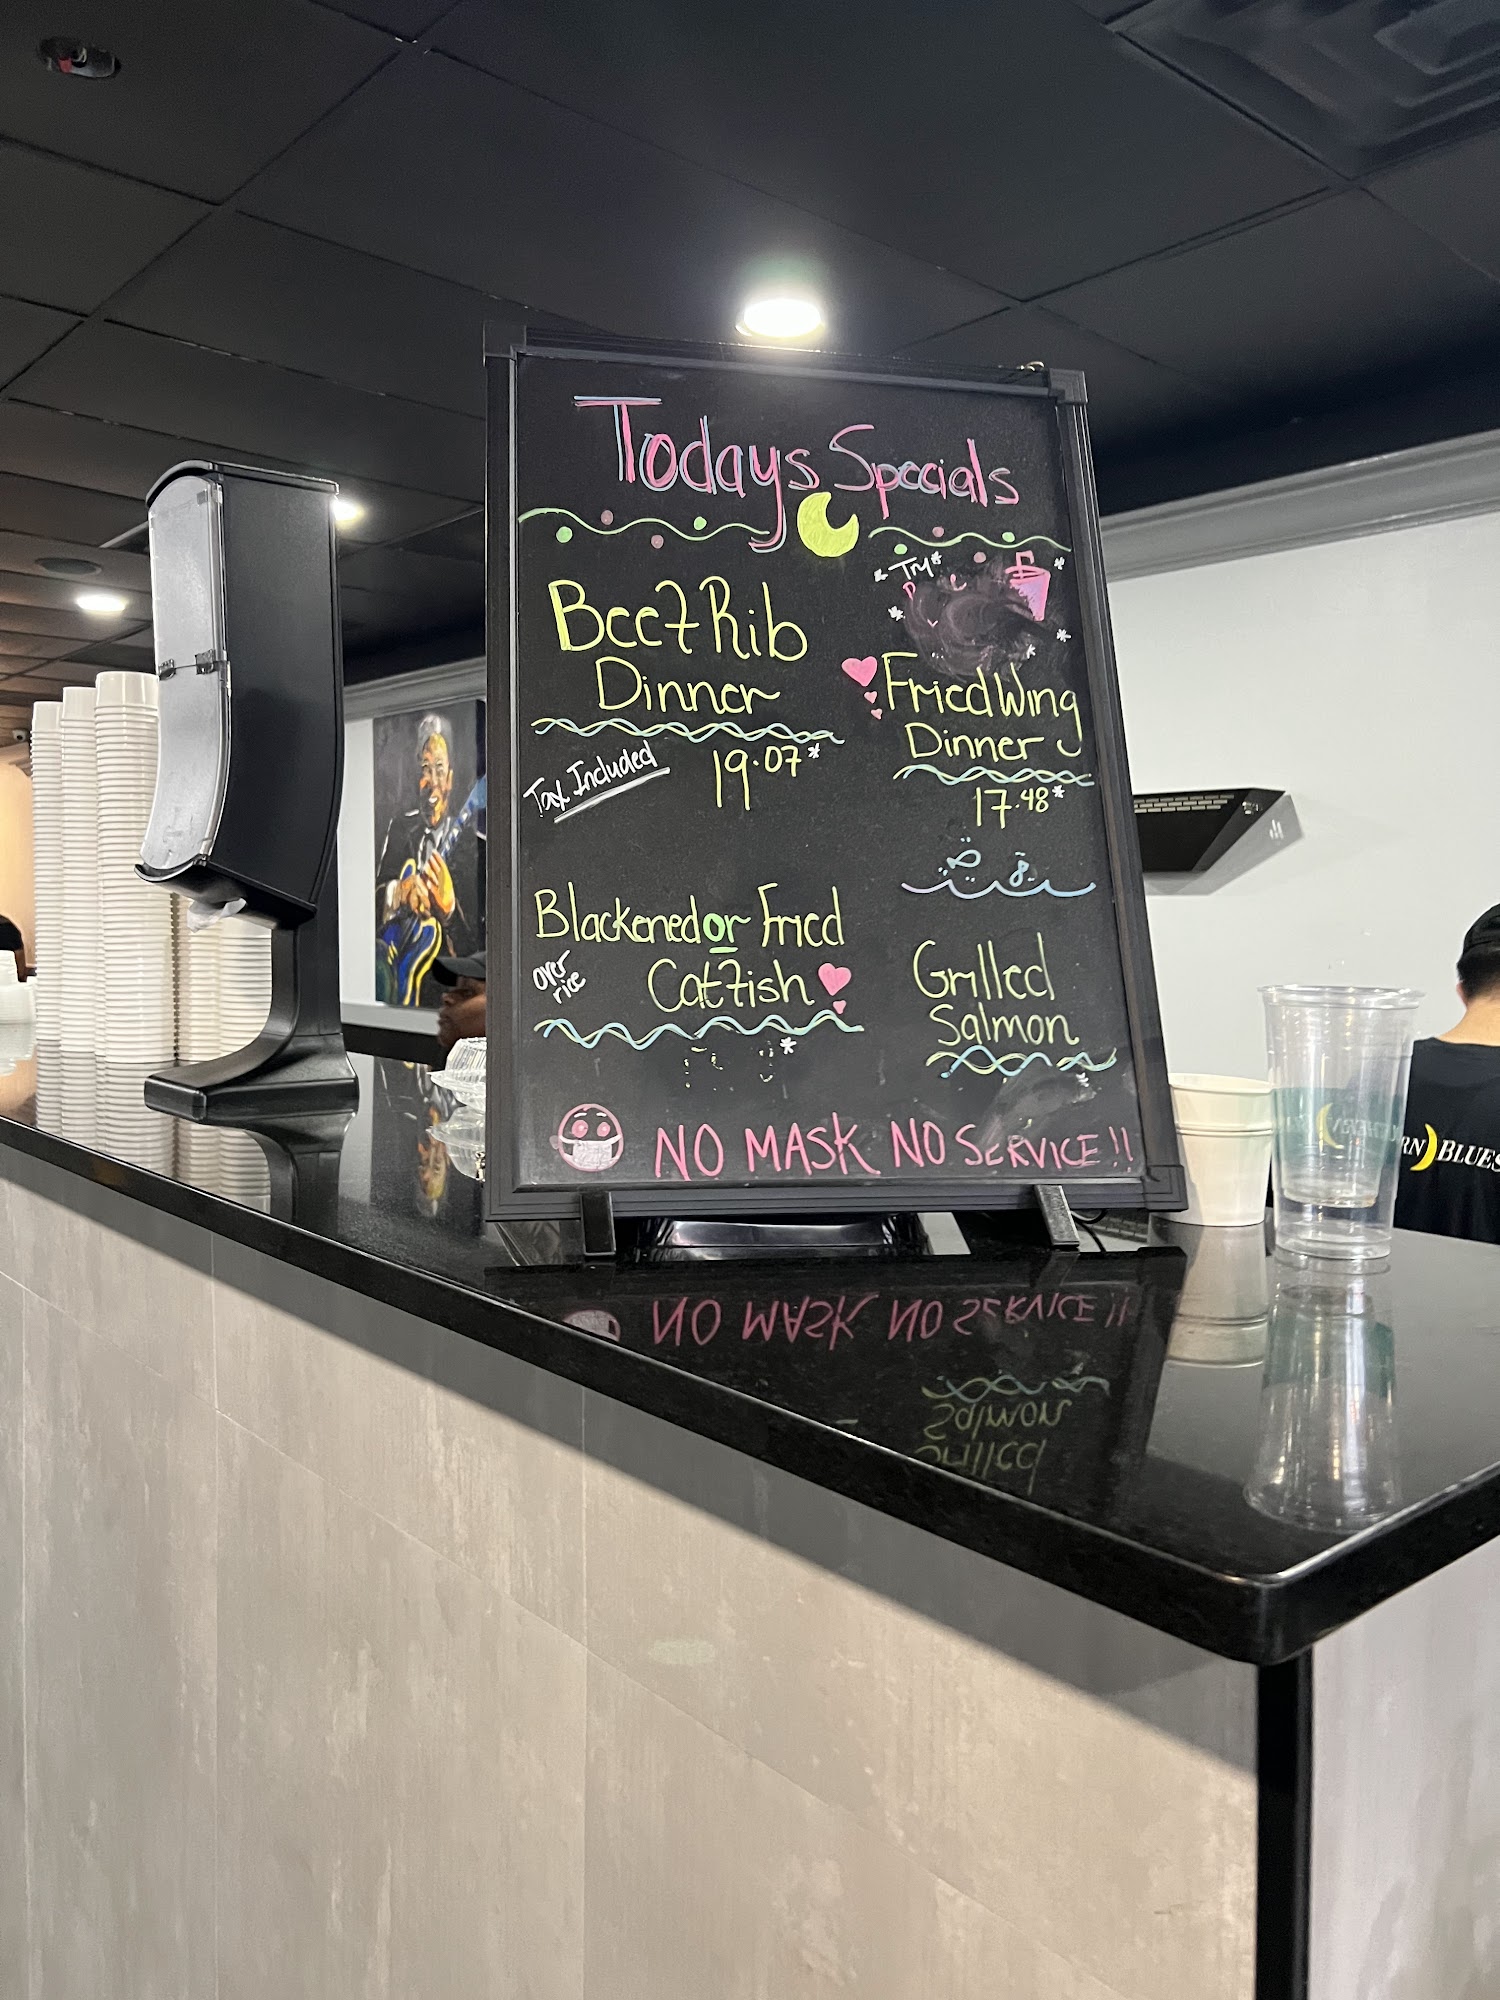 Todays Specials
Beef Rib
Dinner
Tax Included
19.07*
*Try*
Fried Wing
Dinner
17.48*
Blackened or Fried
over
rice
Catfish
*
Grilled
Salmon
NO MASK NO SERVICE!!
RN BLUES